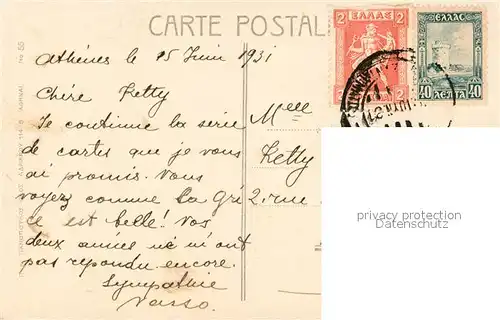 CARTE POSTAL
2 ΕΛΛΑΣ 2
ΕΛΛΑΣ
40 ΛΕΠΤΑ 40
No 55
Athènes le 15 Juin 1931
Chère Ketty
Je continue la serie
de cartes que je vous
ai promis. Vous
voyez comme la Grè
ce est belle! Vos
deux amies ne m'ont
pas répondu encore.
Sympathie
Vasso.
Melle
Ketty
2, rue
privacy protection